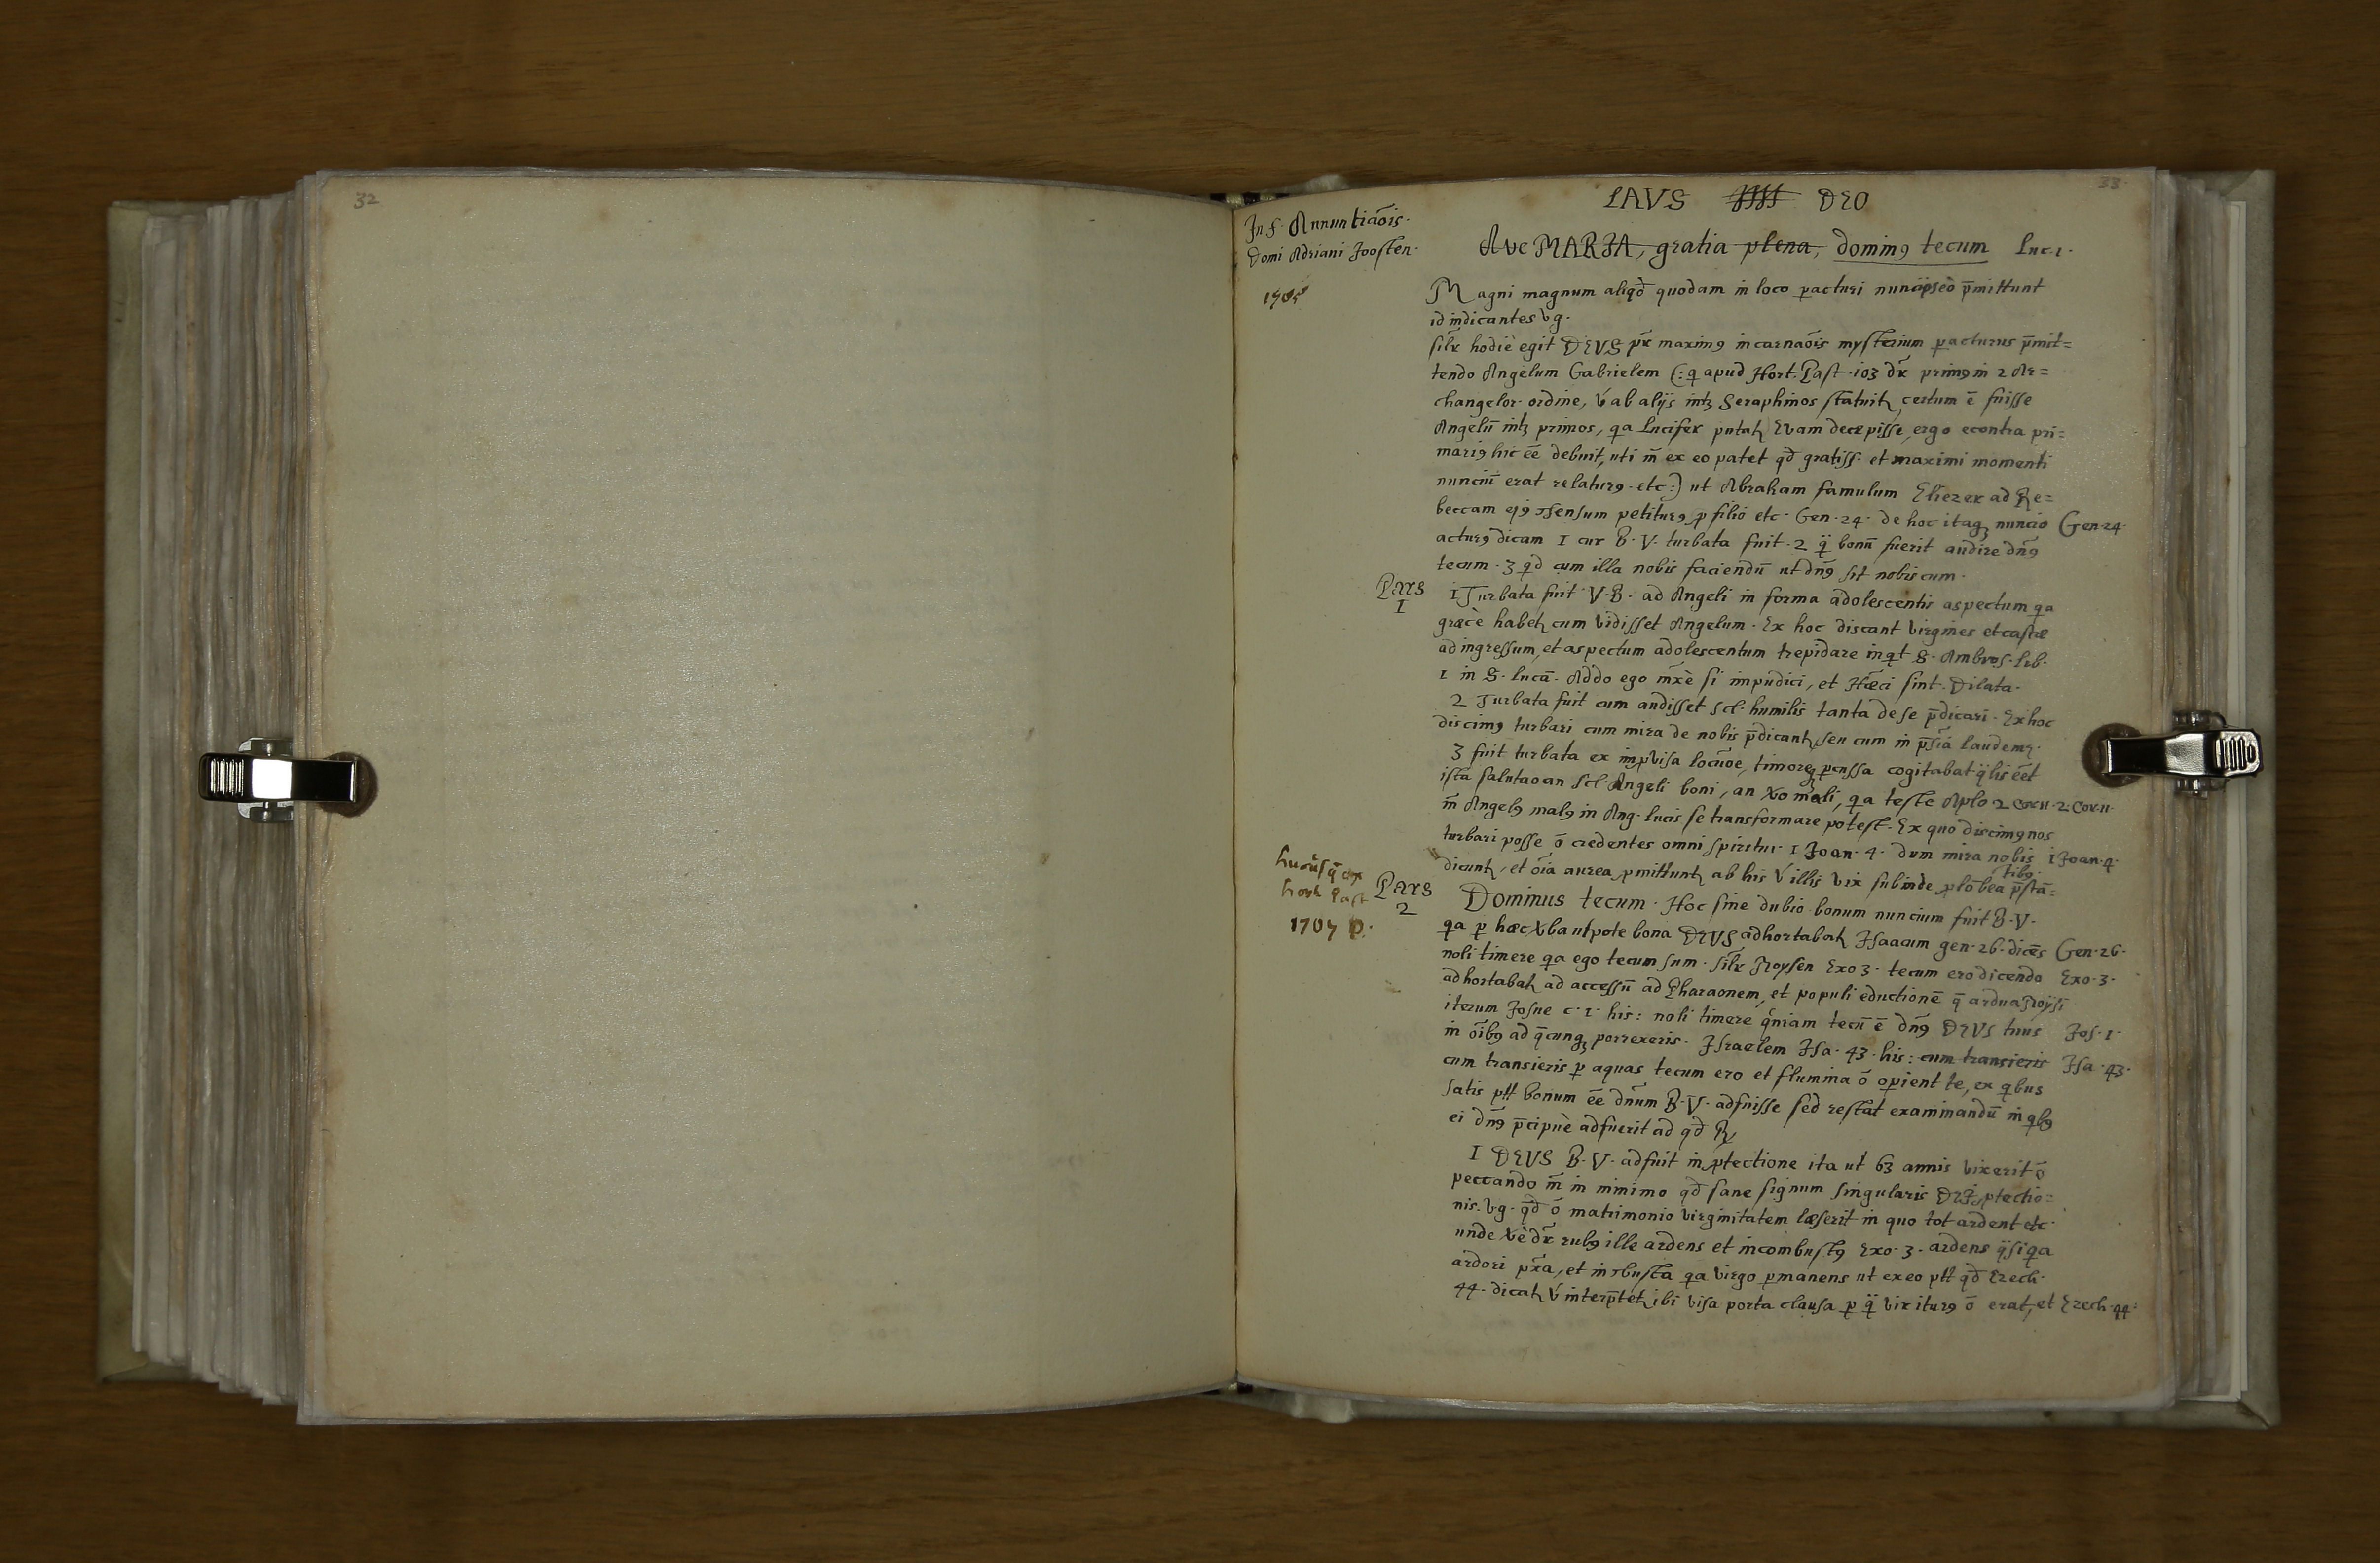 32
33
LAVS DEO
In f. Annuntiaõis.
Domi Adriani Joosten.
1705
Ave MARIA, gratia plena, dominꝰ tecum Luc. 1.
Magni magnum aliqd quodam in loco pacturi p̄mittunt
id indicantes vg.
silr hodiè egit DEVS pr̃ maximꝰ incarnaõis mysterium pacturus p̄mit=
tendo Angelum Gabrielem (: q apud Hort. Past. 103 dr̃ primꝰ in 2 Ar=
changelor. ordine, v́ ab alijs int̃ Seraphinos statuit̃, certum ē fuisse
Angelū int̃ primos, qa Lucifer putat̃ Evam decepisse, ergo econtra pri=
mariꝰ hic ēē debuit, uti m̄ ex eo patet qd̄ gratiss. et maximi momenti
nunciū erat relaturꝰ. etc:) ut Abraham famulum Eliezer ad Re=
beccam ejꝰ ɔsensum petiturꝰ p filio etc. Gen. 24. de hoc itaqꝫ nuncio Gen. 24.
acturꝰ dicam 1 cur B. V. turbata fuit. 2 q̄ bonū fuerit audire dn̄ꝰ
tecum. 3 qd cum illa nobis faciendū ut dn̄ꝰ sit nobiscum.
Pars
1
1 Turbata fuit V. B. ad Angeli in forma adolescentis aspectum qa
græcè habet̃ cum vidisset Angelum. Ex hoc discant virgines et castæ
ad ingressum, et aspectum adolescentum trepidare inqt S. Ambros. lib.
1 in S. Lucā. Addo ego mx̃è si impudici, et sint. Dilata.
2 Turbata fuit cum audisset scl. humilis tanta de se p̄dicari. Ex hoc
discimꝰ turbari cum mira de nobis p̄dicant̃, seu cum in p̄sia laudemꝝ.
3 fuit turbata ex impvisa locũoe, timoreqꝫ pcussa cogitabat q̄lis ēēt
ista salutao an scl. Angeli boni, an Xo mali, qa teste Aplo 2 Cor. 11. 2. Cor. 11.
m̄ Angelꝰ malꝰ in Ang. lucis se transformare potest. Ex quo discimꝰ nos
turbari posse ō credentes omni spiritui. 1 Joan. 4. dum mira nobis 1 Joan. 4.
dicunt̃, et õia aurea pmittunt̃ ab his v́ illis vix subinde p̄stā=
tibꝰ.
hucusq̃ ex
hort Past
1707 p.
Pars
2
Dominus tecum. Hoc sine dubio bonum nuncium fuit B. V.
qa p hæc Xba utpote bona DEVS adhortabat̃ Isaacum gen. 26. dicēs Gen. 26.
noli timere qa ego tecum sum. silr Moysen Exo 3. tecum ero dicendo Exo. 3.
adhortabat̃ ad accessū ad Pharaonem, et populi eductionē q̄ ardua Moysi
iterum Josue c. 1. his: noli timere q́niam tecū ē dn̄ꝰ DEVS tuus Jos. 1.
in õibꝰ ad q̄cunqꝫ porrexeris. Israelem Isa. 43. his: cum transieris Isa. 43.
cum transieris p aquas tecum ero et flumina ō opient te, ex qbus
satis ptt bonum ēē dn̄um B. V. adfuisse sed restat examinandū in qbꝰ
ei dn̄ꝰ p̄cipuè adfuerit ad qd̄ ℟
1 DEVS B. V. adfuit in ptectione ita ut 63 annis vixerit ō
peccando m̄ in minimo qd̄ sane signum singularis DEI ptectio=
nis. vg. qd̄ ō matrimonio virginitatem læserit in quo tot ardent etc.
unde Xè dr̃ rubꝰ ille ardens et incombustꝰ Exo. 3. ardens q̄si qa
ardori px̃a, et inɔbusta qa virgo pmanens ut ex eo ptt qd̄ Ezech.
44. dicat̃ v́ interp̄tet̃ ibi visa porta clausa p q̄ vir iturꝰ ō erat, et Ezech. 44.